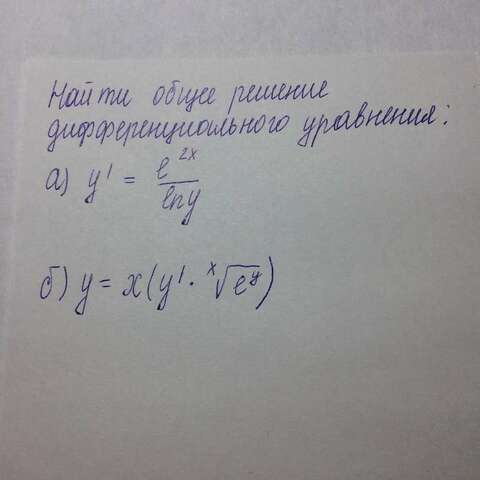 Найти общее решение
дифференциального уравнения:
а) y' = e^{2x}/ln y
б) y = x(y' · ˣ√(e^y))